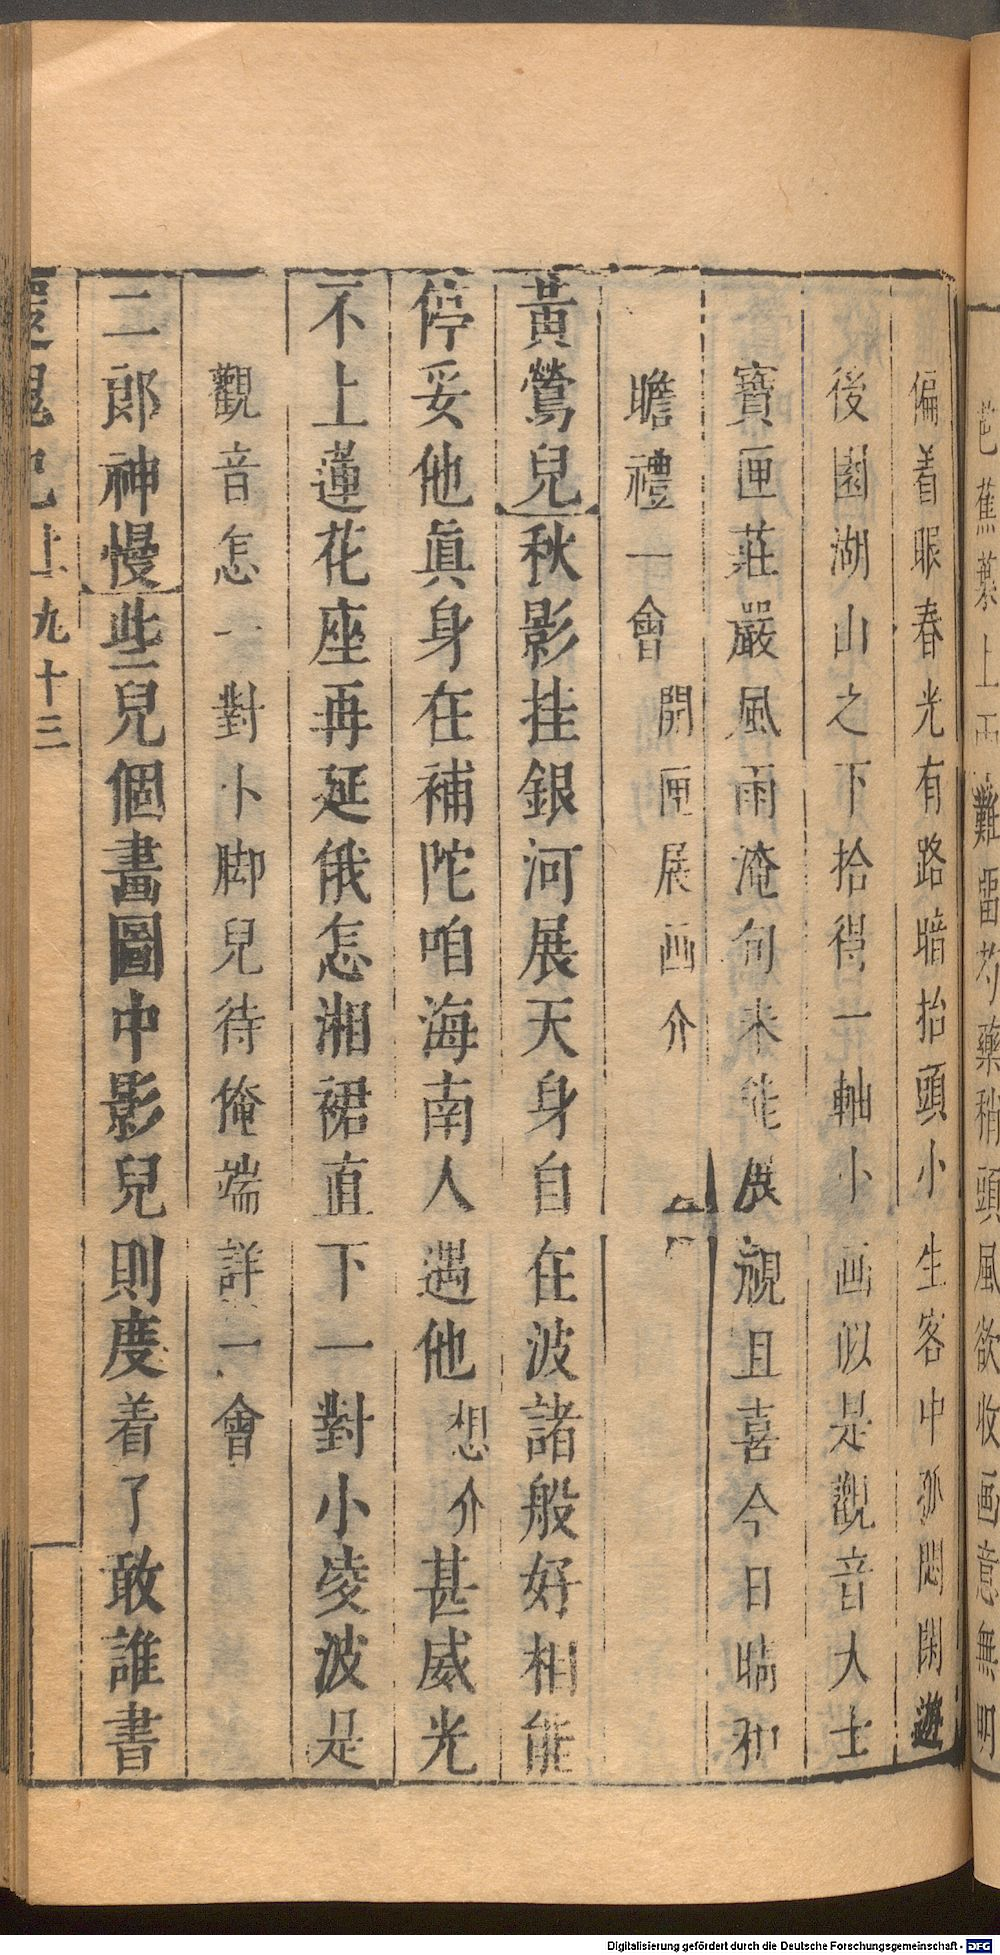 芭蕉蘂上雨難留芍藥稍頭風欲收画意無明
偏着眼春光有路暗抬頭小生客中孤悶閑遊
後園湖山之下拾得一軸小画似是觀音大士
寶匣莊嚴風雨淹旬未能展視且喜今日晴和
瞻禮一會開匣展画介
黃鶯兒秋影挂銀河展天身自在波諸般好相能
停妥他眞身在補陀咱海南人遇他想介甚威光
不上蓮花座再延俄怎湘裙直下一對小凌波是
觀音怎一對小脚兒待俺端詳一會
二郎神慢些兒個畫圖中影兒則度着了敢誰書
還魂記 上 九十三
Digitalisierung gefördert durch die Deutsche Forschungsgemeinschaft - DFG